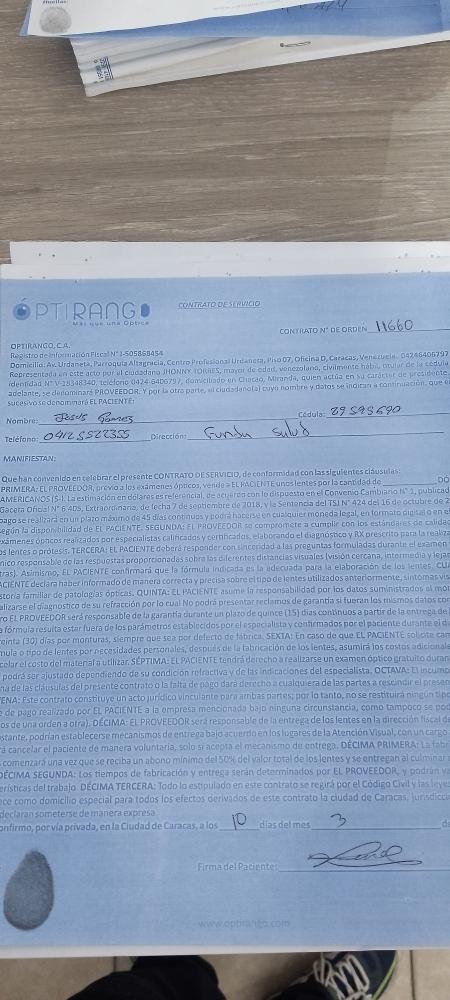 Huellas:
ÓPTIRANGO
Más que una Óptica
CONTRATO DE SERVICIO
CONTRATO N° DE ORDEN 11660
OPTIRANGO, C.A.
Registro de Información Fiscal N° J-505868454
Domicilio: Av. Urdaneta, Parroquia Altagracia, Centro Profesional Urdaneta, Piso 07, Oficina D, Caracas, Venezuela. 04246406797
Representada en este acto por el ciudadano JHONNY TORRES, mayor de edad, venezolano, civilmente hábil, titular de la cédula
identidad N° V-18348340, teléfono 0424-6406797, domiciliado en Chacao, Miranda, quien actúa en su carácter de presidente
adelante, se denominará PROVEEDOR. Y por la otra parte, el ciudadano(a) cuyo nombre y datos se indican a continuación, que e
sucesivo se denominará EL PACIENTE:
Nombre: Jesus Gomez Cédula: 29595690
Teléfono: 0412 5522355 Dirección: Funda Salud
MANIFIESTAN:
Que han convenido en celebrar el presente CONTRATO DE SERVICIO, de conformidad con las siguientes cláusulas:
PRIMERA: EL PROVEEDOR, previo a los exámenes ópticos, vende a EL PACIENTE unos lentes por la cantidad de DÓ
AMERICANOS ($-). La estimación en dólares es referencial, de acuerdo con lo dispuesto en el Convenio Cambiario N° 1, publicad
Gaceta Oficial N° 6.405, Extraordinario, de fecha 7 de septiembre de 2018, y la Sentencia del TSJ N° 424 del 16 de octubre de 2
pago se realizará en un plazo máximo de 45 días continuos y podrá hacerse en cualquier moneda legal, en formato digital o en ef
según la disponibilidad de EL PACIENTE. SEGUNDA: EL PROVEEDOR se compromete a cumplir con los estándares de calidad
exámenes ópticos realizados por especialistas calificados y certificados, elaborando el diagnóstico y RX prescrito para la realiza
os lentes o prótesis. TERCERA: EL PACIENTE deberá responder con sinceridad a las preguntas formuladas durante el examen
nico responsable de las respuestas proporcionadas sobre las diferentes distancias visuales (visión cercana, intermedia y lejan
tras). Asimismo, EL PACIENTE confirmará que la fórmula indicada es la adecuada para la elaboración de los lentes. CUA
ACIENTE declara haber informado de manera correcta y precisa sobre el tipo de lentes utilizados anteriormente, síntomas vis
storia familiar de patologías ópticas. QUINTA: EL PACIENTE asume la responsabilidad por los datos suministrados al mom
alizarse el diagnostico de su refracción por lo cual No podrá presentar reclamos de garantía si fueran los mismos datos con
ro EL PROVEEDOR será responsable de la garantía durante un plazo de quince (15) días continuos a partir de la entrega de l
a fórmula resulta estar fuera de los parámetros establecidos por el especialista y confirmados por el paciente durante el di
reinta (30) días por monturas, siempre que sea por defecto de fábrica. SEXTA: En caso de que EL PACIENTE solicite cam
mula o tipo de lentes por necesidades personales, después de la fabricación de los lentes, asumirá los costos adicional
celar el costo del material a utilizar. SÉPTIMA: EL PACIENTE tendrá derecho a realizarse un examen óptico gratuito duran
podrá ser ajustado dependiendo de su condición refractiva y de las indicaciones del especialista. OCTAVA: El incump
na de las cláusulas del presente contrato o la falta de pago dará derecho a cualquiera de las partes a rescindir el presen
ENA: Este contrato constituye un acto jurídico vinculante para ambas partes; por lo tanto, no se restituirá ningún tipo
e de pago realizado por EL PACIENTE a la empresa mencionada bajo ninguna circunstancia, como tampoco se pod
os de una orden a otra). DÉCIMA: EL PROVEEDOR será responsable de la entrega de los lentes en la dirección fiscal d
ostante, podrían establecerse mecanismos de entrega bajo acuerdo en los lugares de la Atención Visual, con un cargo
rá cancelar el paciente de manera voluntaria, solo si acepta el mecanismo de entrega. DÉCIMA PRIMERA: La fabr
comenzará una vez que se reciba un abono mínimo del 50% del valor total de los lentes y se entregan al culminar
DÉCIMA SEGUNDA: Los tiempos de fabricación y entrega serán determinados por EL PROVEEDOR, y podrán va
erísticas del trabajo. DÉCIMA TERCERA: Todo lo estipulado en este contrato se regirá por el Código Civil y las leyes
ece como domicilio especial para todos los efectos derivados de este contrato la ciudad de Caracas, jurisdicció
declaran someterse de manera expresa.
onfirmo, por vía privada, en la Ciudad de Caracas, a los 10 días del mes 3 de
Firma del Paciente:
www.optirango.com